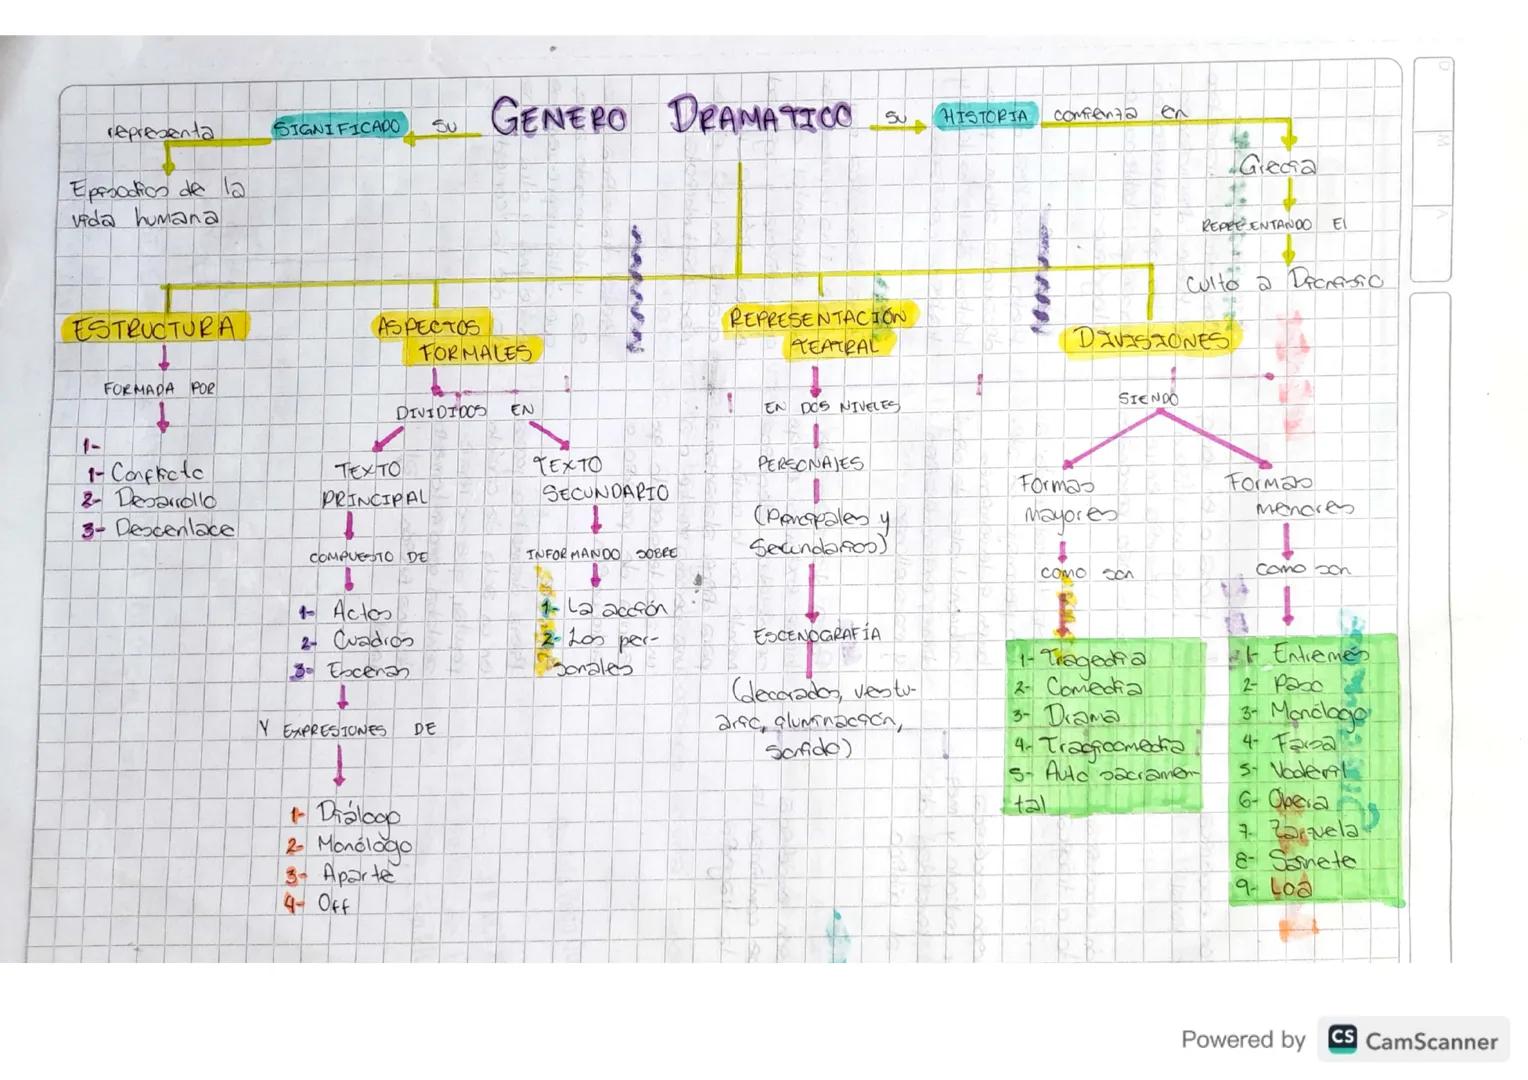 GENERO DRAMATICO
su
SIGNIFICADO
representa
Episodios de la
vida humana
su
HISTORIA
comienza en
Grecia
REPRESENTANDO El
culto a Dionisio
ESTRUCTURA
FORMADA POR
1-
1- Conflicto
2- Desarrollo
3- Descenlace
ASPECTOS
FORMALES
DIVIDIDOS EN
TEXTO
PRINCIPAL
COMPUESTO DE
1- Actos
2- Cuadros
3- Escenas
Y EXPRESIONES DE
1- Diálogo
2- Monólogo
3- Aparte
4- Off
TEXTO
SECUNDARIO
INFORMANDO SOBRE
1- La acción
2- Los per-
sonales
REPRESENTACIÓN
TEATRAL
EN DOS NIVELES
PERSONAJES
(Principales y
Secundarios)
ESCENOGRAFÍA
(decorados, vestu-
ario, iluminación,
sonido)
DIVISIONES
SIENDO
Formas
mayores
como son
1- Tragedia
2- Comedia
3- Drama
4- Tragicomedia
5- Auto sacramen-
tal
Formas
menores
como son
1- Entremés
2- Paso
3- Monólogo
4- Farsa
5- Vodevil
6- Opera
7- Zarzuela
8- Sainete
9- Loa
D
M
A
Powered by CS CamScanner